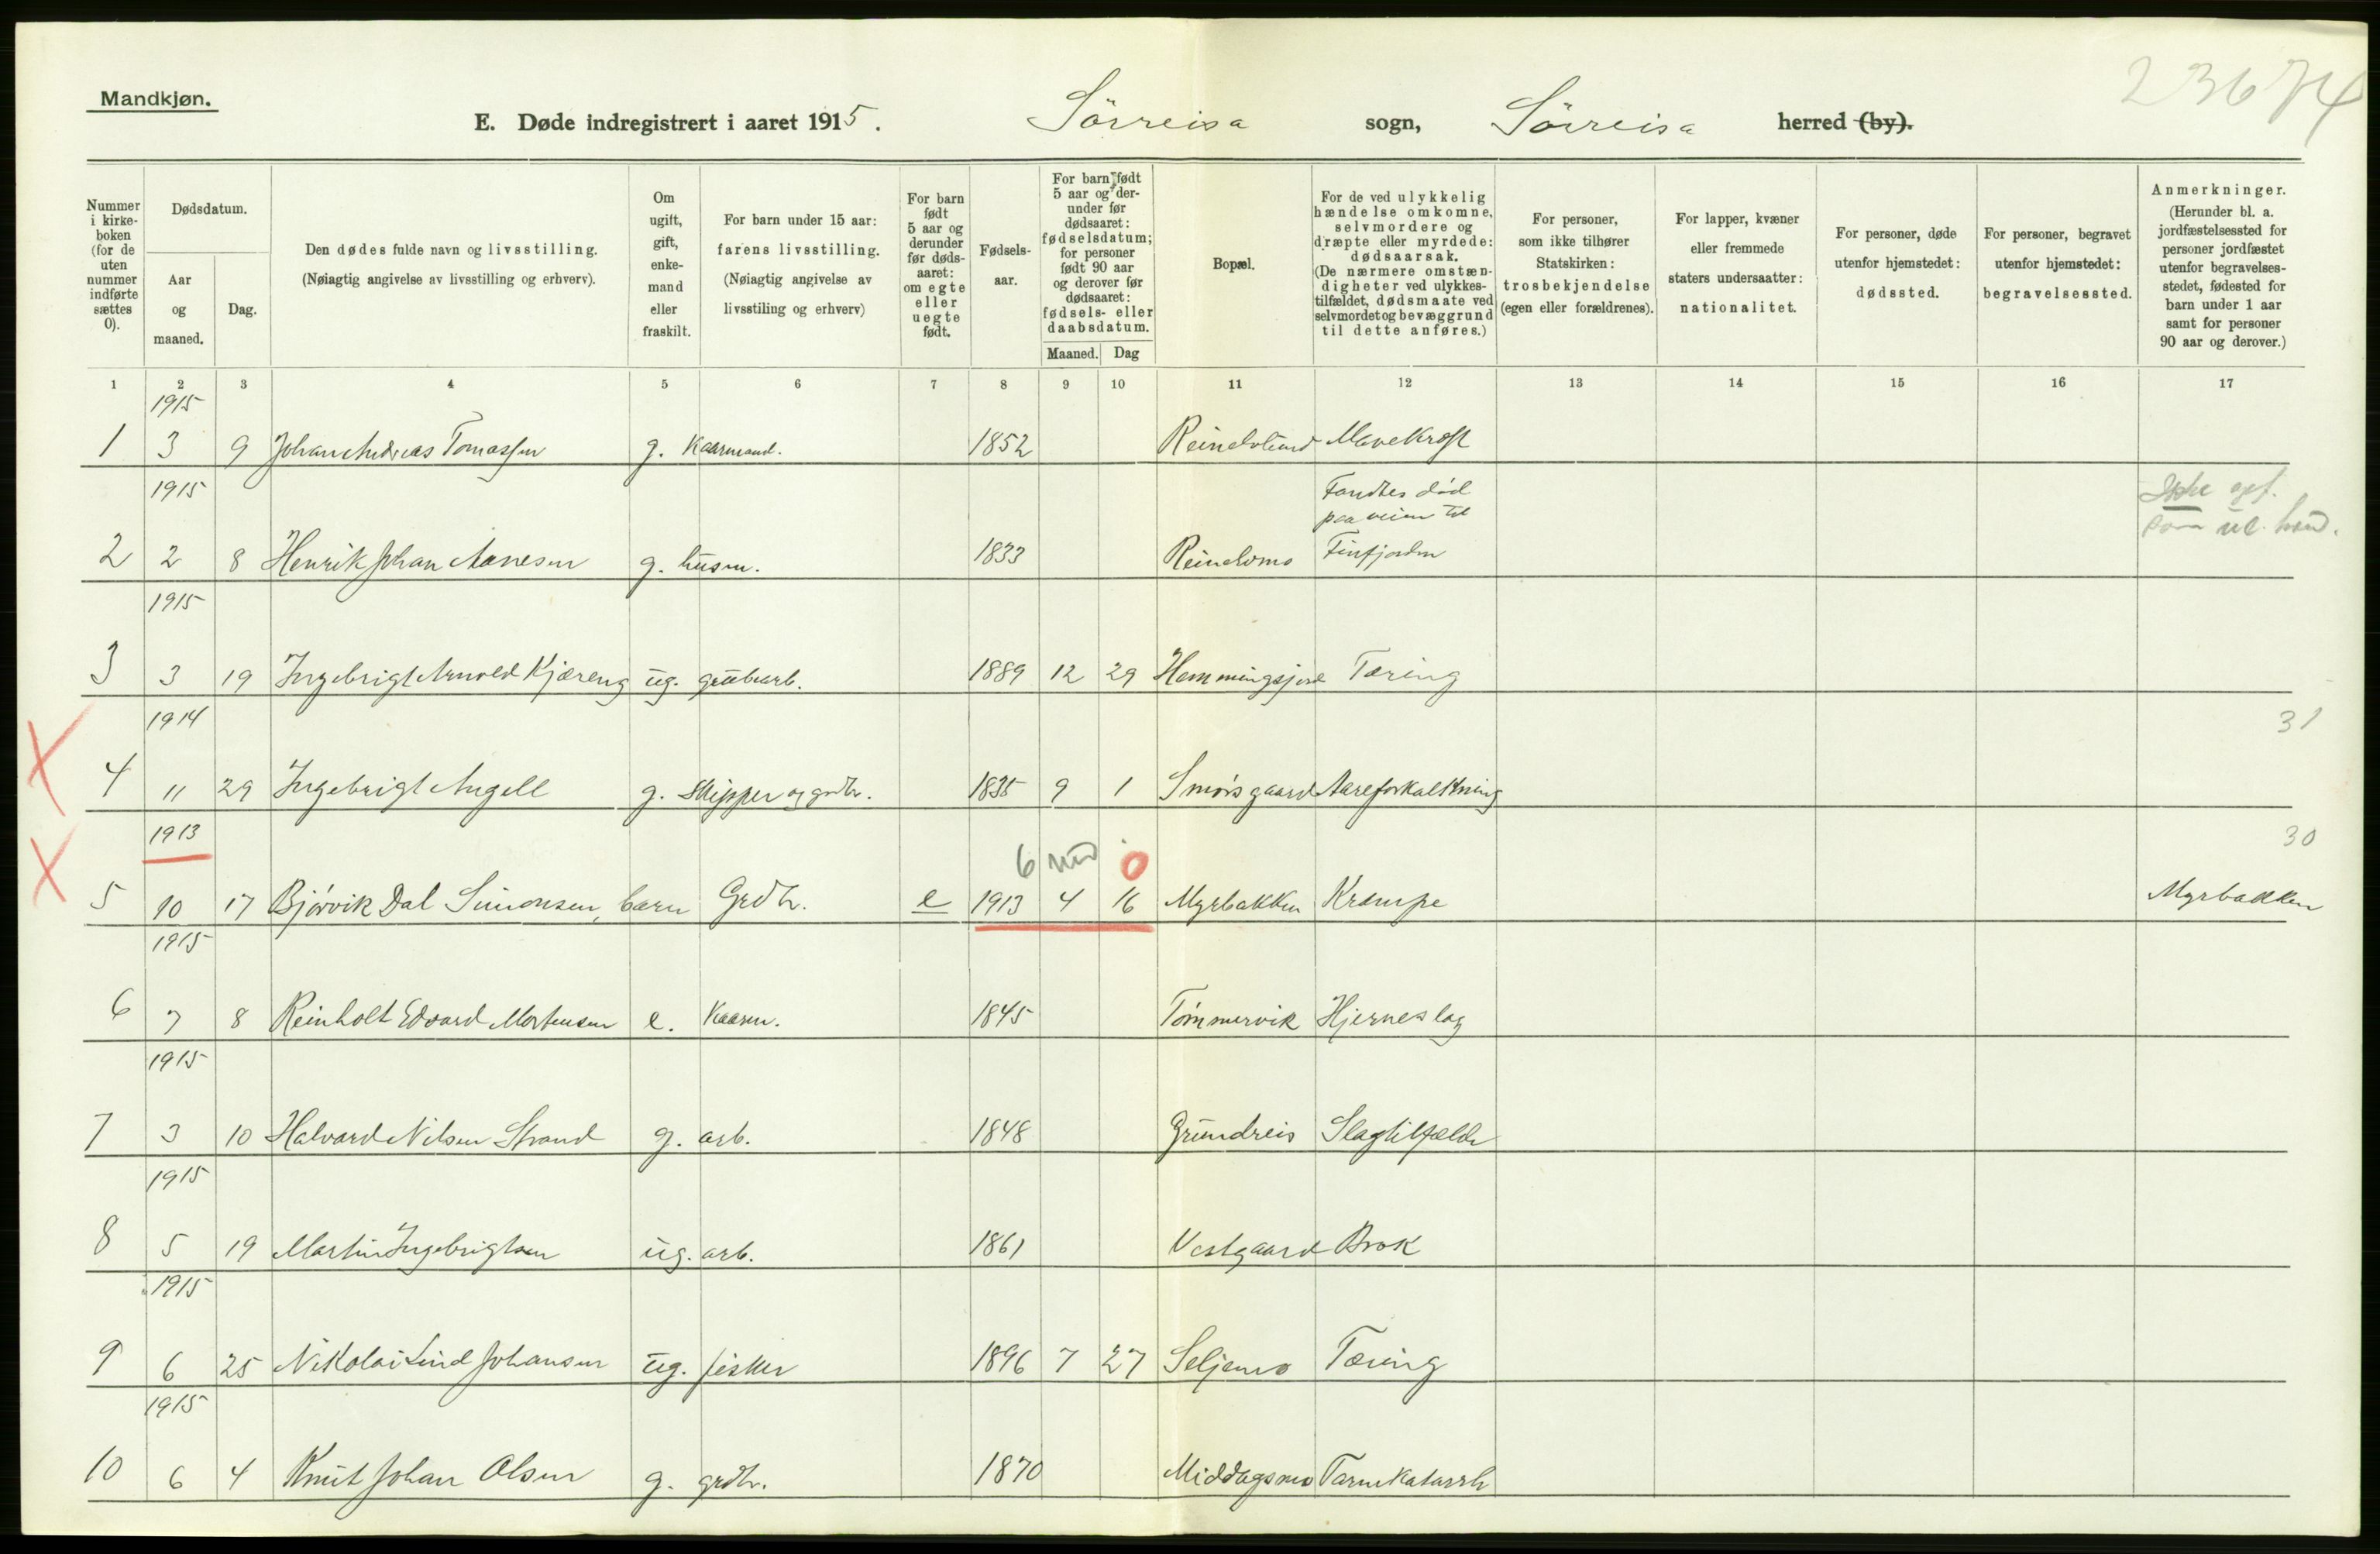 Mandkjøn.
23674
E. Døde indregistrert i aaret 1915. Sörreisa sogn, Sörreisa herred (by).
Nummer i kirke- boken (for de uten nummer indførte sættes 0).
Dødsdatum.
Aar og maaned.
Dag.
Den dødes fulde navn og livsstilling.
(Nøiagtig angivelse av livsstilling og erhverv).
Om ugift, gift, enke- mand eller fraskilt.
For barn under 15 aar: farens livsstilling.
(Nøiagtig angivelse av livsstiling og erhverv)
For barn født 5 aar og derunder før døds- aaret: om egte eller uegte født.
Fødsels- aar.
For barn født 5 aar og der- under før dødsaaret: fødselsdatum; for personer født 90 aar og derover før dødsaaret: fødsels- eller daabsdatum.
Maaned. Dag
Bopæl.
For de ved ulykkelig hændelse omkomne, selvmordere og dræpte eller myrdede: dødsaarsak.
(De nærmere omstæn- digheter ved ulykkes- tilfældet, dødsmaate ved selvmordet og bevæggrund til dette anføres.)
For personer, som ikke tilhører Statskirken: trosbekjendelse (egen eller forældrenes).
For lapper, kvæner eller fremmede staters undersaatter: nationalitet.
For personer, døde utenfor hjemstedet: dødssted.
For personer, begravet utenfor hjemstedet: begravelsessted.
Anmerkninger.
(Herunder bl. a. jordfæstelsessted for personer jordfæstet utenfor begravelses- stedet, fødested for barn under 1 aar samt for personer 90 aar og derover.)
1 2 3 4 5 6 7 8 9 10 11 12 13 14 15 16 17
1915
1 3 9 Johan Andreas Tomassen g. Kaarmand. 1852 Reinelvlund Mavekræft
1915 Fandtes død Ikke opf.
paa veien til som ul. hænd.
2 2 8 Henrik Johan Aanesen g. husm. 1833 Reinelvmo Finfjorden
1915
3 3 19 Ingebrigt Arnold Kjæreng ug. grubearb. 1889 12 29 Hemmingsjord Tæring
1914 31
4 11 29 Ingebrigt Angell g. Skipper og grdbr. 1835 9 1 Smörsgaard Aareforkalkning
1913 30
6 md 0
5 10 17 Bjórvik Dal Simonsen, barn Grdbr. e 1913 4 16 Myrbakken Krampe Myrbakken
1915
6 7 8 Reinholt Edvard Mortensen e. Kaarm. 1845 Tömmervik Hjerneslag
1915
7 3 10 Halvard Nilsen Strand g. arb. 1848 Grundreis Slagtilfælde
1915
8 5 19 Martin Ingebrigtsen ug. arb. 1861 Vestgaard Brok
1915
9 6 25 Nikolai Lind Johansen ug. fisker 1896 7 27 Seljemo Tæring
1915
10 6 4 Knut Johan Olsen g. grdbr. 1870 Middagsnes Tarmkatarrh